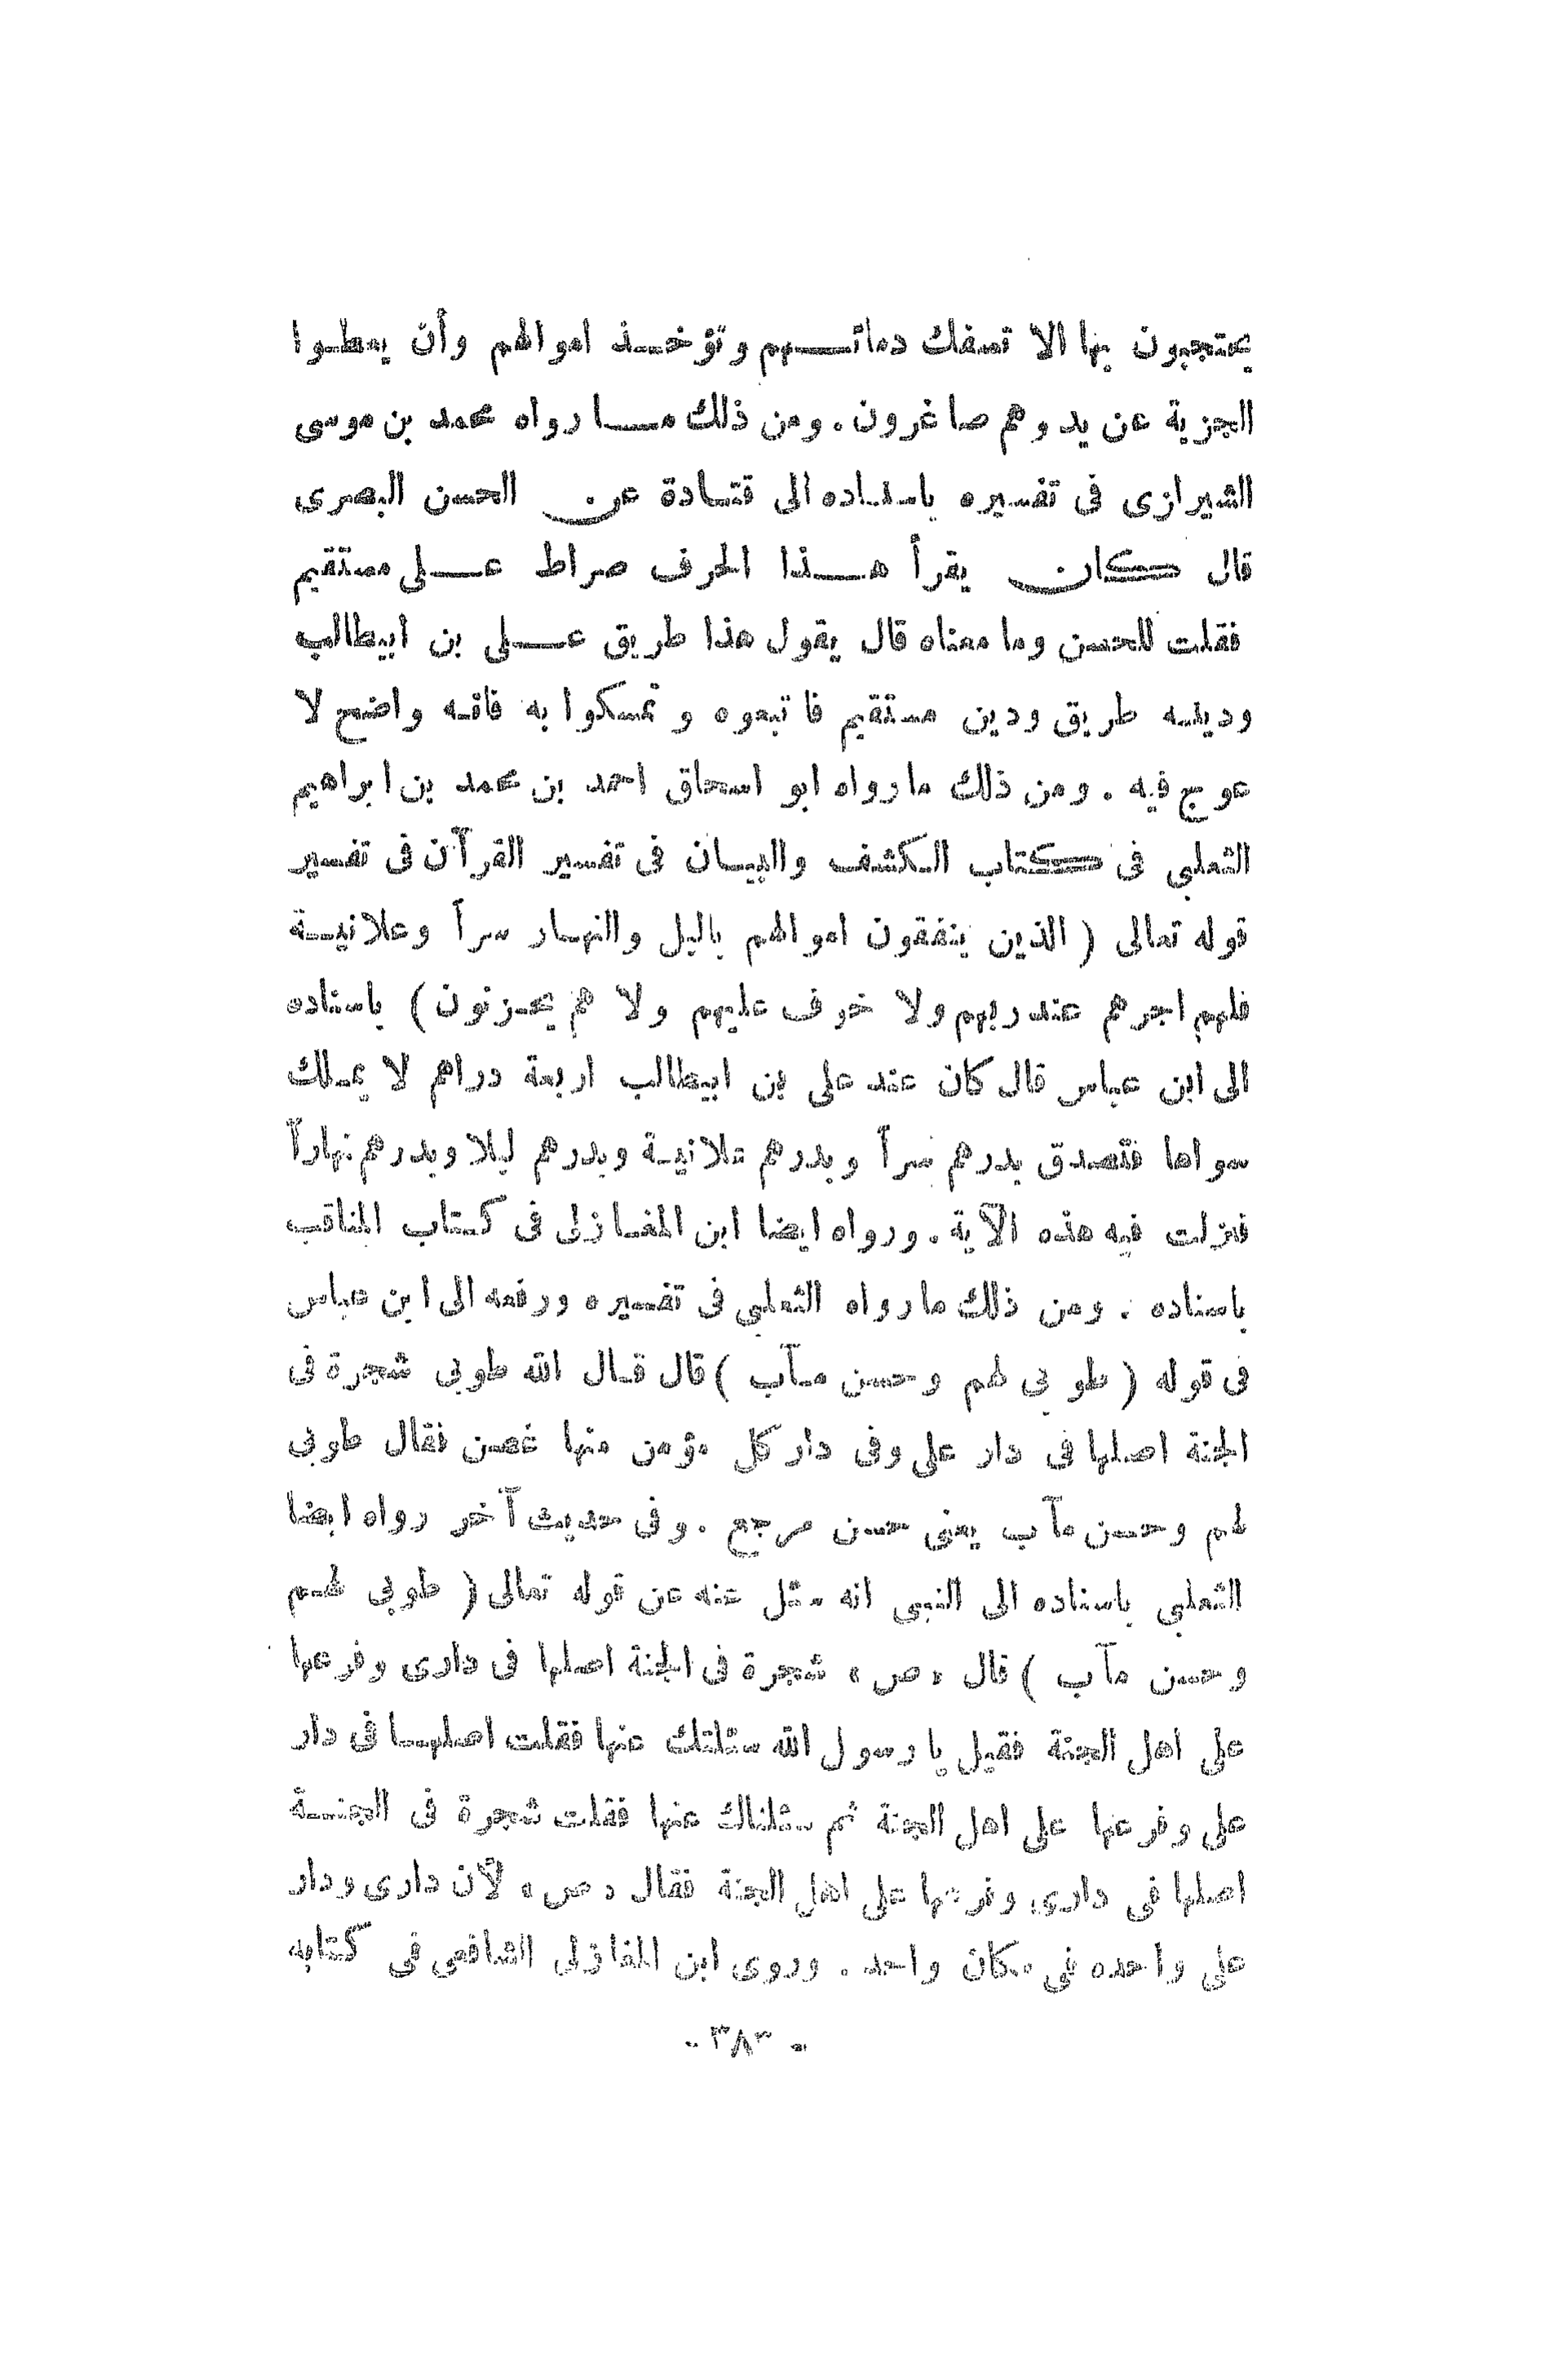 يحتجبون بها الا تسفك دمائهم وتؤخذ اموالهم وأن يعطوا
الجزية عن يد وهم صاغرون. ومن ذلك ما رواه محمد بن موسى
الشيرازى فى تفسيره باسناده الى قتادة عن الحسن البصرى
قال كان يقرأ هذا الحرف صراط على مستقيم
فقلت للحسن وما معناه قال يقول هذا طريق على بن ابيطالب
ودينه طريق ودين مستقيم فاتبعوه وتمسكوا به فانه واضح لا
عوج فيه . ومن ذلك مارواه ابو اسحاق احمد بن محمد بن ابراهيم
الثعلبي فى كتاب الكشف والبيان فى تفسير القرآن فى تفسير
قوله تعالى ( الذين ينفقون اموالهم باليل والنهار سرآ وعلانية
فلهم اجرهم عند ربهم ولا خوف عليهم ولا هم يحزنون ) باسناده
الى ابن عباس قال كان عند على بن ابيطالب اربعة دراهم لا يملك
سواها فتصدق بدرهم سرآ وبدرهم علانية وبدرهم ليلا وبدرهم نهارآ
فنزلت فيه هذه الآية . ورواه ايضا ابن المغازلى فى كتاب المناقب
باسناده . ومن ذلك مارواه الثعلبي فى تفسيره ورفعه الى ابن عباس
فى قوله ( طوبى لهم وحسن مآب ) قال قال الله طوبى شجرة فى
الجنة اصلها فى دار على وفى دار كل مؤمن منها غصن فقال طوبى
لهم وحسن مآب يعنى حسن مرجع . وفى حديث آخر رواه ايضا
الثعلبي باسناده الى النبى انه سئل عنه عن قوله تعالى ( طوبى لهم
وحسن مآب ) قال «ص» شجرة فى الجنة اصلها فى دارى وفرعها
على اهل الجنة فقيل يا رسول الله سئلتك عنها فقلت اصلها فى دار
على وفرعها على اهل الجنة ثم سئلناك عنها فقلت شجرة فى الجنة
اصلها فى دارى وفرعها على اهل الجنة فقال «ص» لأن دارى ودار
على واحده فى مكان واحد . وروى ابن المغازلى الشافعى فى كتابه